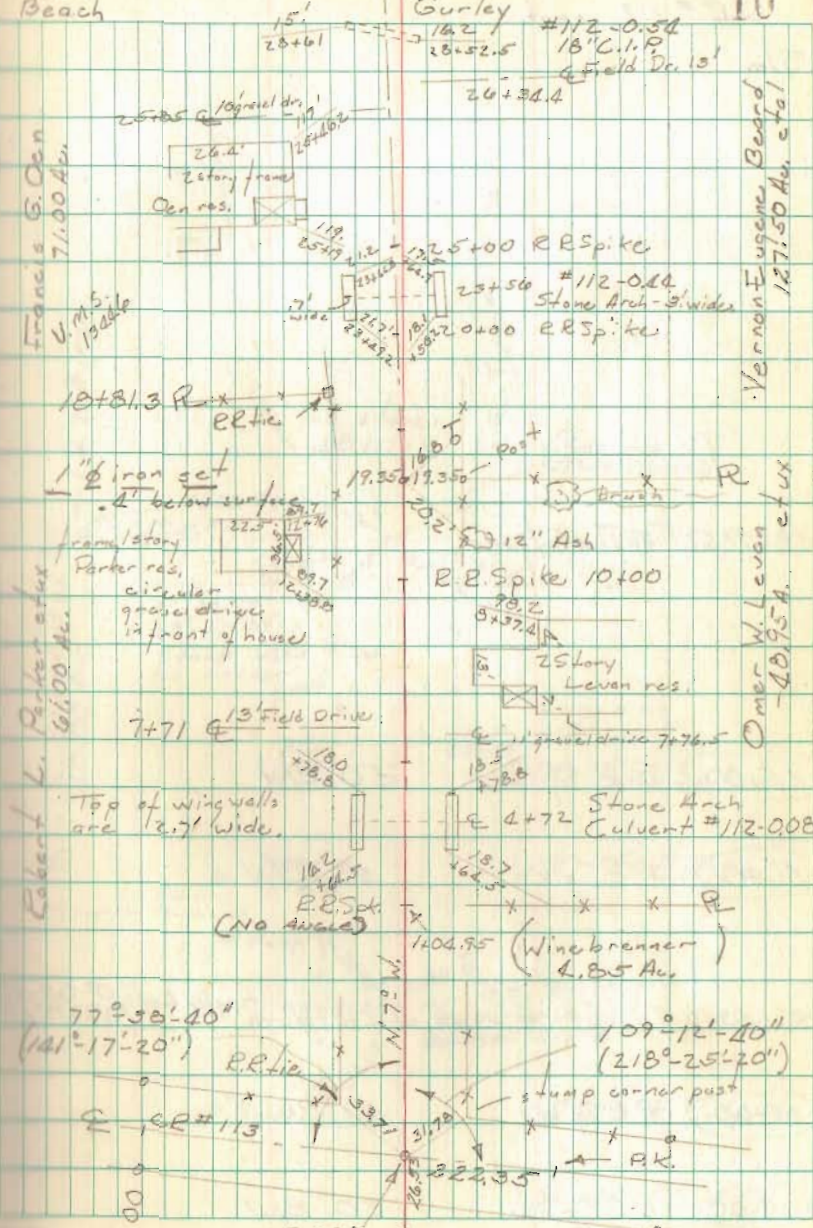 Beach
Gurley
10
15'
23+61
16.2
23+52.5
#112-0.54
18" C.I.P.
℄ Field Dr. 13'
26+34.4
25+85 ℄ 10' gravel dr.
117'
25+46.2
26.4'
2 story frame
Oen res.
119.
25+19
Francis G. Oen
71.00 Ac.
V.M.S.
13446
Vernon Eugene Beard
127.50 Ac. etal
21.2
25+00 R.R. Spike
23+56
#112-0.44
Stone Arch - 3' wide
.7'
wide
21.7
23+49.2
18.1
20+00 R.R. Spike
18+81.3 PL
R.R. tie
16.8
post
19.35
19.35
PL
1" ø iron set
.4' below surface
brush
20.2'
12" Ash
22.5'
89.7
12+38.8
frame 1 story
Parker res.
circular
gravel drive
in front of house
R.R. Spike 10+00
98.2
8+37.4
13'
2 Story
Levan res.
Omer W. Levan etux
40.95 A.
Robert L. Parker etux
61.00 Ac.
7+71 ℄ 13' Field Drive
℄ 11' gravel drive 7+76.5
18.0
+78.8
18.5
+78.8
Top of wingwalls
are 2.7' wide.
℄ 4+72 Stone Arch
Culvert #112-0.08
16.2
+64.5
18.7
+64.5
R.R. Spk.
(NO ANGLE)
PL
1+04.95
(Winebrenner
4.85 Ac.)
N 7° W.
77°-38'-40"
(141°-17'-20")
109°-12'-40"
(218°-25'-20")
R.R. tie
stump corner post
33.71
31.78
℄ CR #113
26.53
222.35
P.K.
00